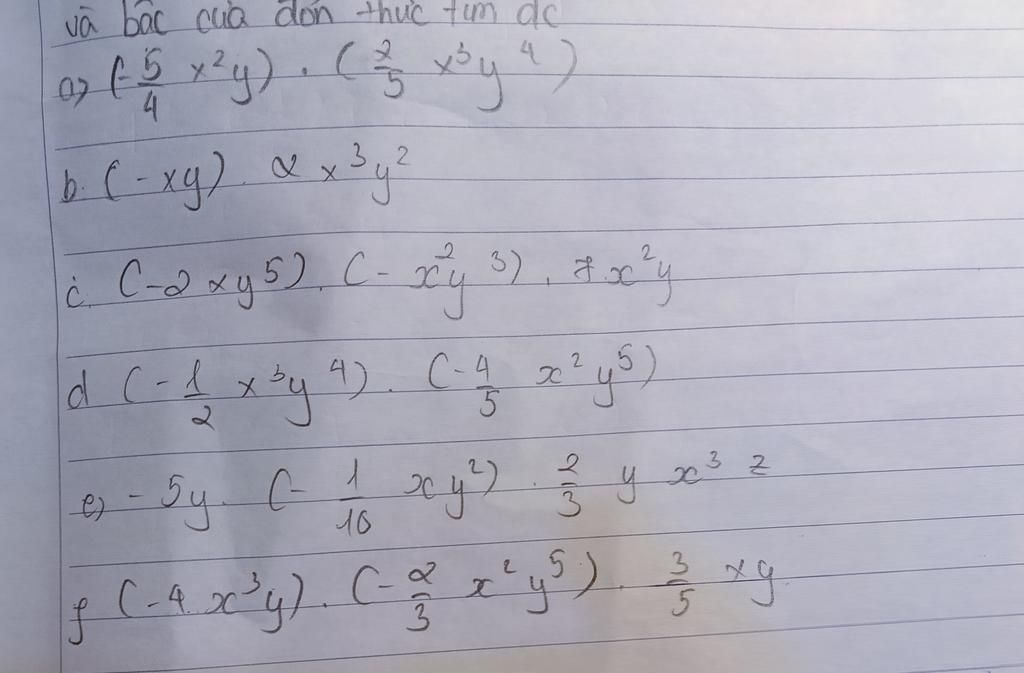 và bậc của đơn thức tìm dc
a) (-5/4 x²y) . (2/5 x³y⁴)
b. (-xy) . 2 x³y²
c. (-2xy⁵) . (-x²y³) . 7.x²y
d (-1/2 x³y⁴) . (-4/5 x²y⁵)
e) -5y . (-1/10 xy²) . 2/3 y x³ z
f (-4.x³y) . (-2/3 x²y⁵) . 3/5 xy.